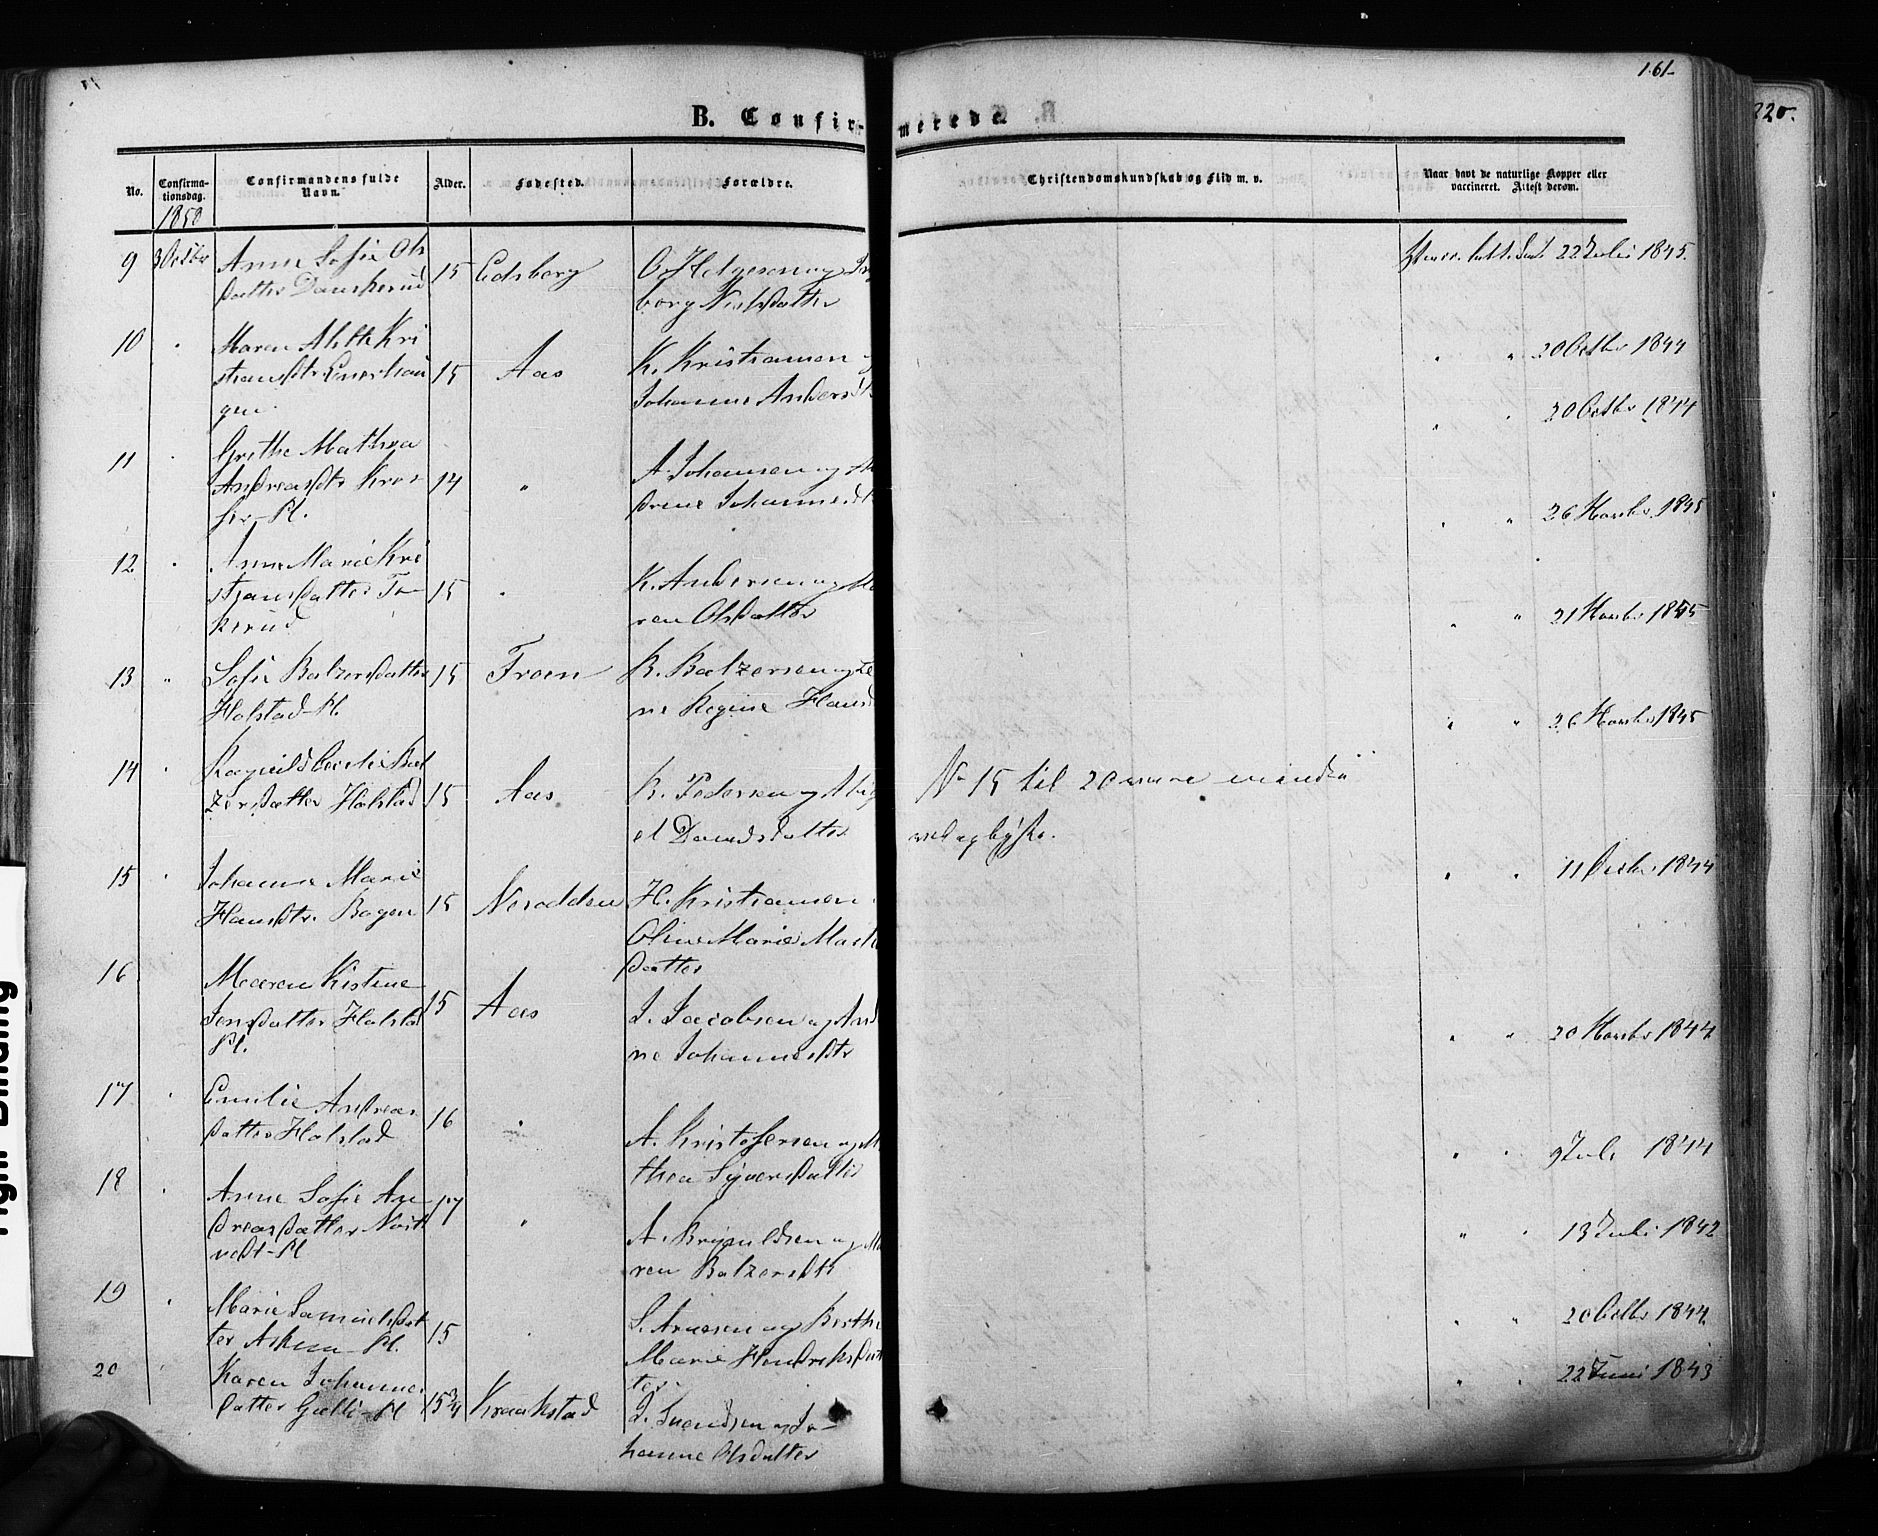 161.
220.
B. Confir-merede.
No.
Confirma-
tionsdag.
Confirmandens fulde
Navn.
Alder.
Fødested.
Forældre.
Christendomskundskab og Flid m. v.
Naar havt de naturlige Kopper eller
vaccineret. Attest derom.
1858
9 3 Octbr Anne Sofie Ols
datter Danskerud 15 Edsberg O. Helgesen og In
borg Nielsdatter 22 Juli 1845.
10 Maren Kri
stiansdtr Enerhau
gen. 15 Aas K. Kristiansen
Johanne Andersdt 20 Octbr 1844
11 Grethe Mathea
Andreasdtr Kros
ser-Pl. 14 " A. Johansen og An
drene Johannesdt 20 Octbr 1844
26 Novbr 1845
12. Anne Marie Kri
stjansdatter To-
kerud 15 K. Andersen og Ma
ren Olsdatter " 21 Novbr 1845
13 " Sofie Balzersdatter
Holstad-Pl. 15 Froen B. Balzersen og Le
ne Regine Hansd " 26 Novbr 1845
14 Ragnild Bal
zersdatter Holstad 15 Aas B. Pedersen og Abig
el Davidsdatter
No 15 til 20 vare mindre
vel oplyste.
15 Johanne Marie
Hansdtr. Bagen 15 Nesodden H. Kristiansen
Oline Marie Mark
datter 11 Decbr 1844
16 Maren Kistine
Jensdatter Holstad
Pl. 15 Aas J. Jacobsen og And
ne Johannesdtr " 20 Novbr 1844
17 Emilie Andreas
datter Holstad 16 " A. Kristofersen og M
thea Syversdatter 9 Juli 1844
18 Anne Sofie An
dreasdatter Nost
vedt-Pl 17 " A. Brynildsen og Ma
ren Balzersdtr " 13 Juli 1842
19 Marie Samuelsdat
ter Askeu-Pl. 15 S. Arnesen og Berthe
Marie Hendriksdat
ter " 20 Octbr 1844
20 Karen Johannes
datter Gjelle-Pl 15 3/4 Kraakstad J. Svendsen og Jo-
hanne Olsdatter " 22 Juni 1843
Right Binding